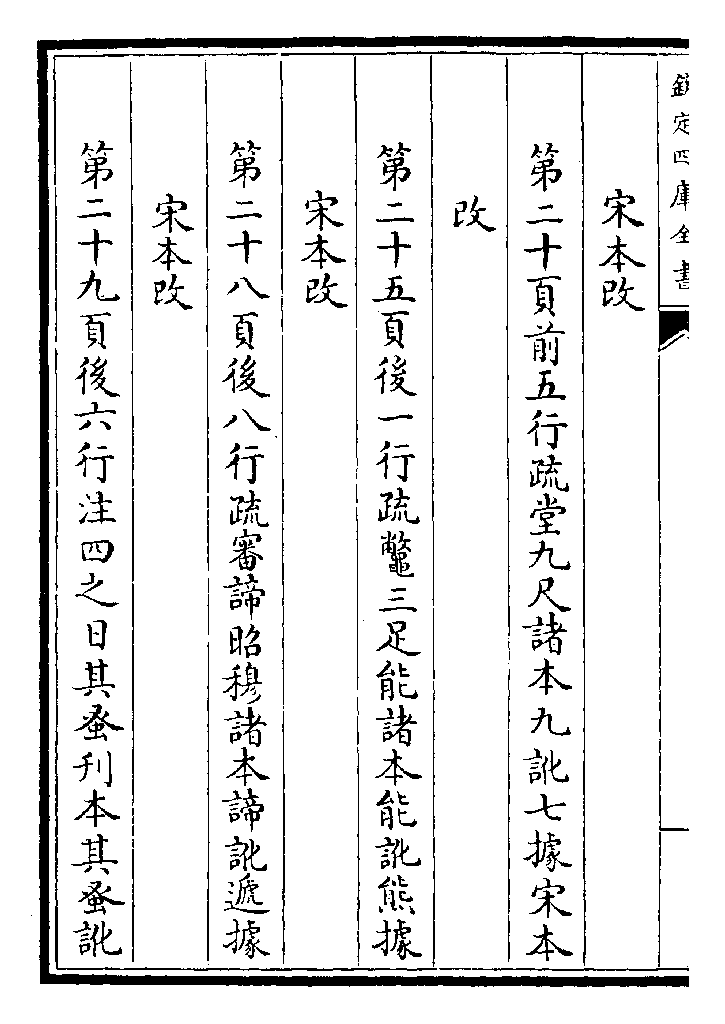 欽定四庫全書
宋本改
第二十頁前五行疏堂九尺諸本九訛七據宋本
改
第二十五頁後一行疏鼈三足能諸本能訛熊據
宋本改
第二十八頁後八行疏審諦昭穆諸本諦訛遞據
宋本改
第二十九頁後六行注四之日其蚤刋本其蚤訛